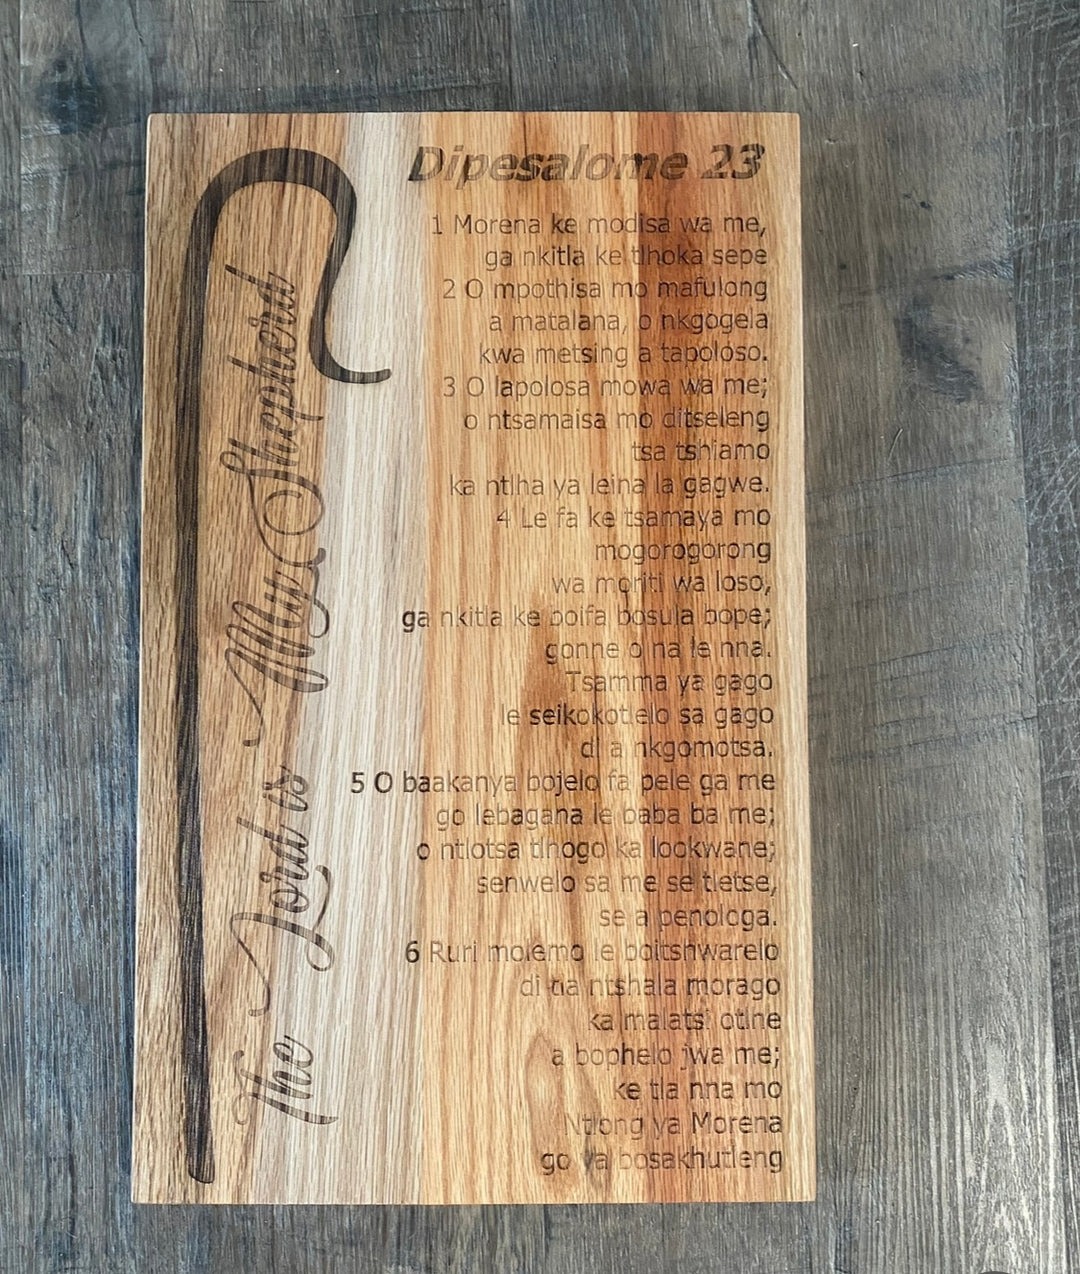 The Lord is My Shepherd
Dipesalome 23
1 Morena ke modisa wa me,
ga nkitla ke tlhoka sepe
2 O mpothisa mo mafulong
a matalana, o nkgogela
kwa metsing a tapoloso.
3 O lapolosa mowa wa me;
o ntsamaisa mo ditseleng
tsa tshiamo
ka ntlha ya leina la gagwe.
4 Le fa ke tsamaya mo
mogorogorong
wa moriti wa loso,
ga nkitla ke boifa bosula bope;
gonne o na le nna.
Tsamma ya gago
le seikokotlelo sa gago
di a nkgomotsa.
5 O baakanya bojelo fa pele ga me
go lebagana le baba ba me;
o ntlotsa tlhogo ka lookwane;
senwelo sa me se tletse,
se a penologa.
6 Ruri molemo le boitshwarelo
di tla ntshala morago
ka malatsi otlhe
a bophelo jwa me;
ke tla nna mo
Ntlong ya Morena
go ya bosakhutleng